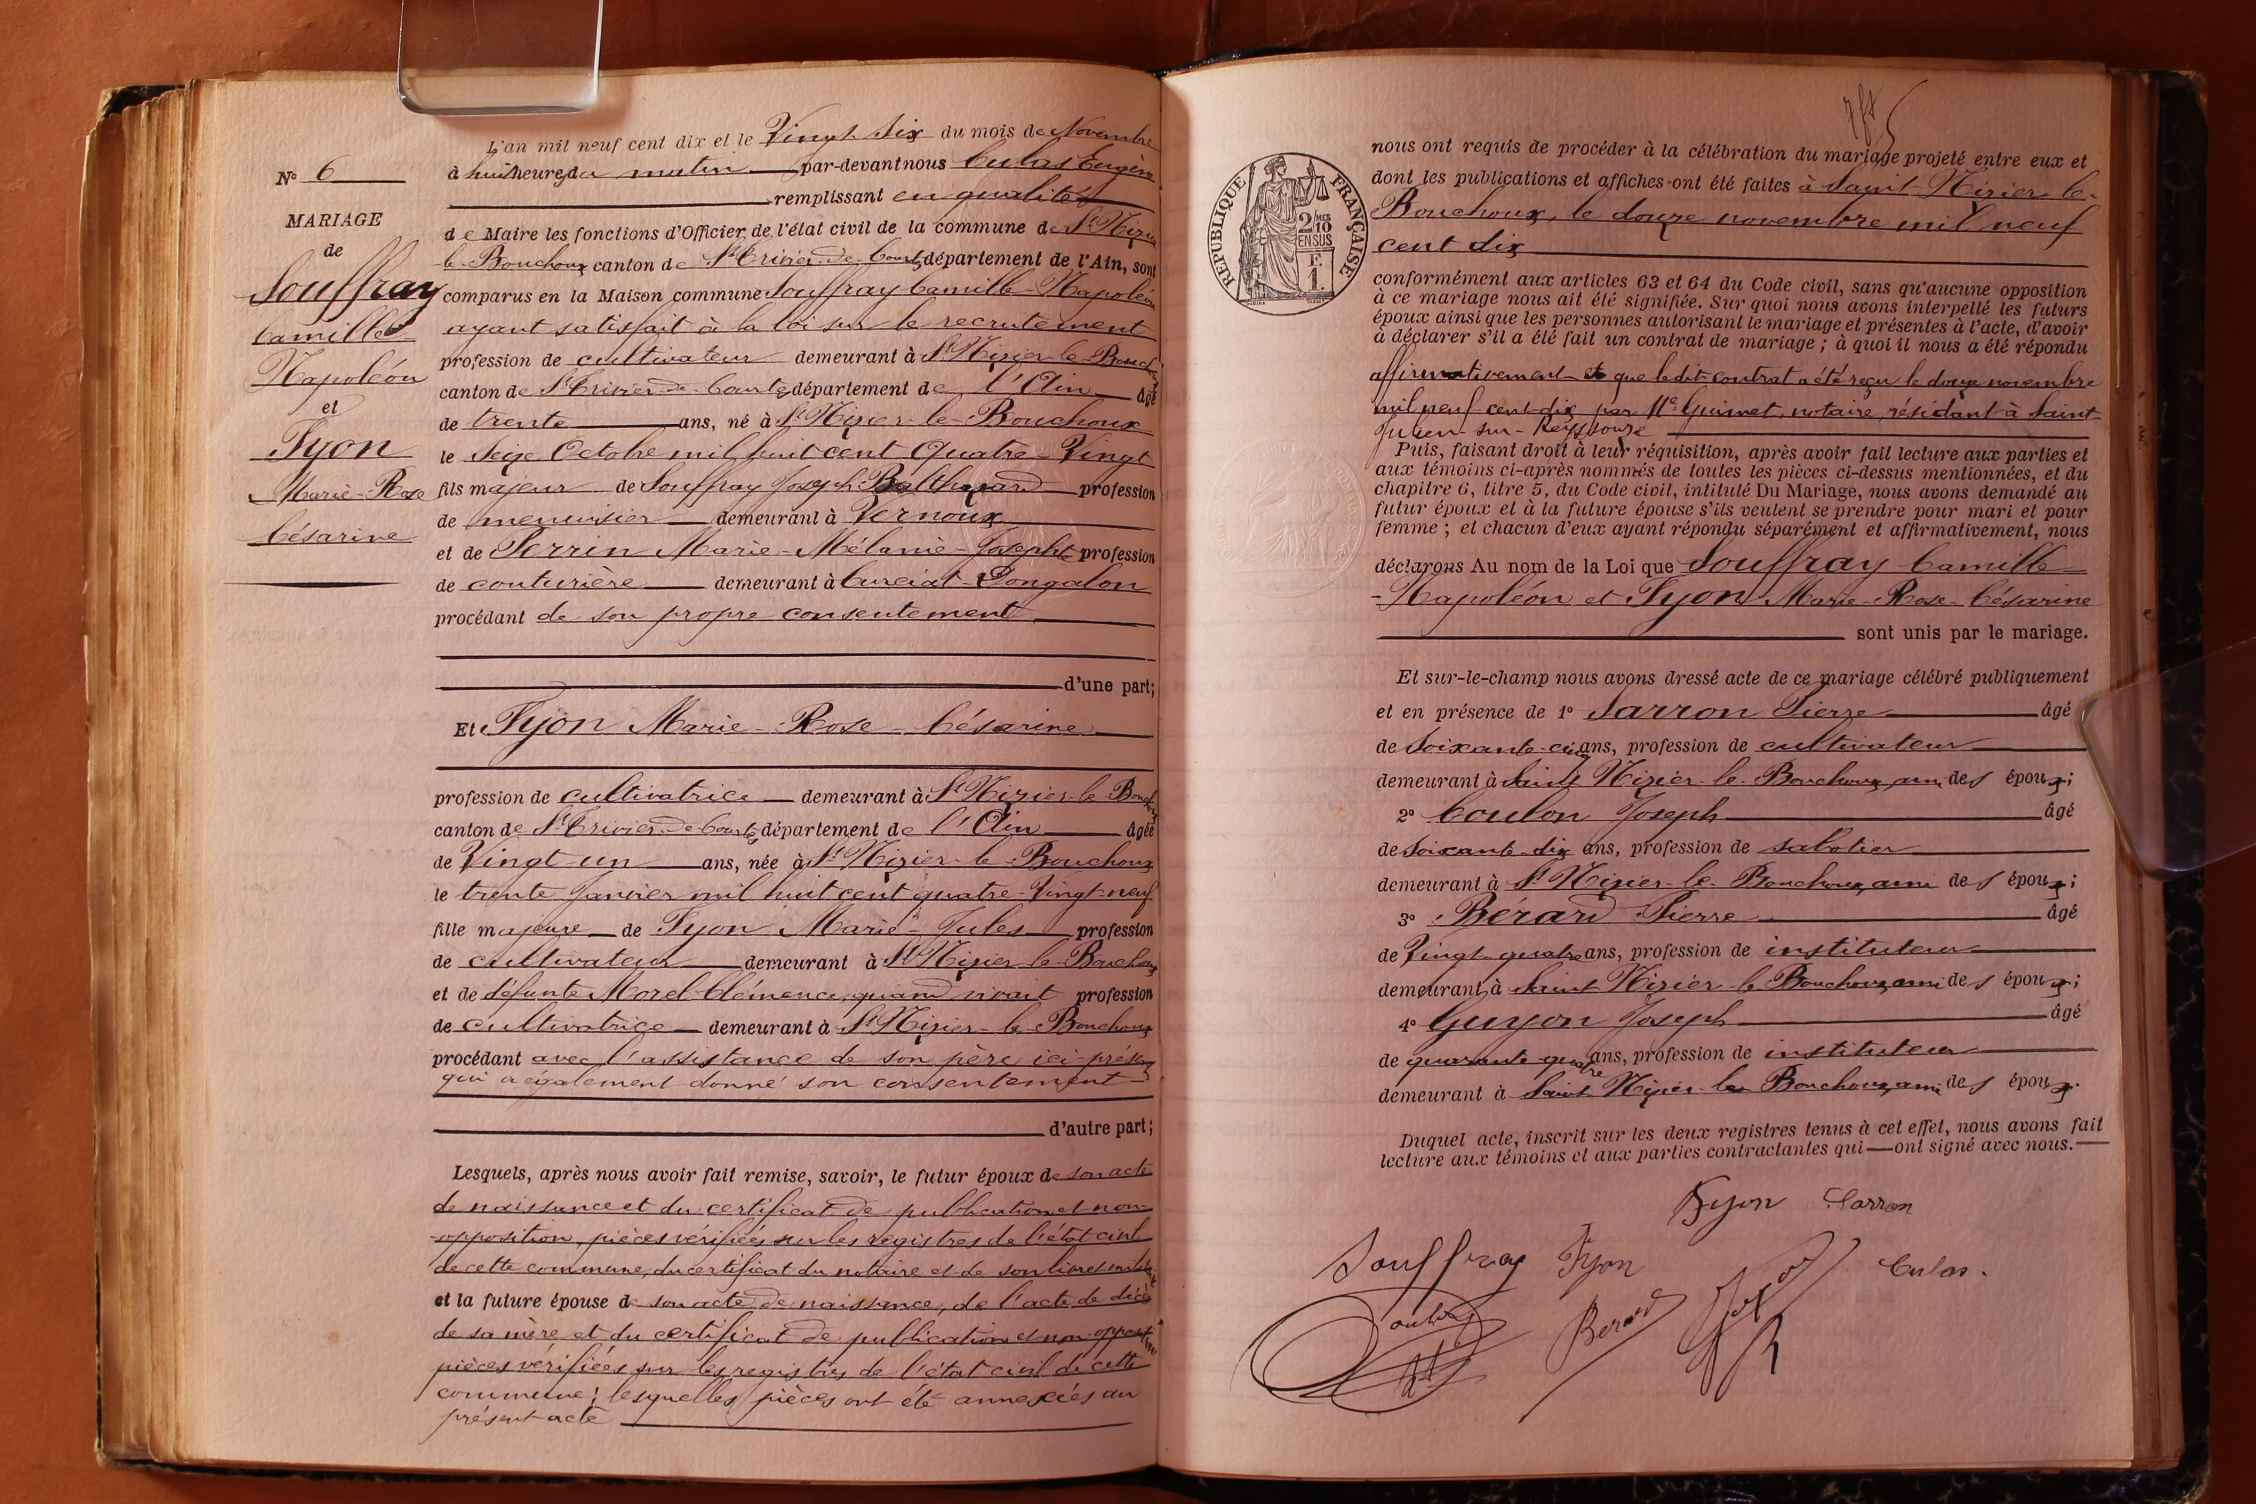 N° 6
MARIAGE
de
Souffray
Camille
Napoléon
et
Fyon
Marie-Rose
Césarine
L'an mil neuf cent dix et le Vingt Six du mois de Novembre
à huit heures du matin par-devant nous Culas Eugène
remplissant en qualité
de Maire les fonctions d'Officier de l'état civil de la commune de St Nizier
le-Bouchoux canton de St Trivier-de-Courtes département de l'Ain, sont
comparus en la Maison commune Souffray Camille-Napoléon
ayant satisfait à la loi sur le recrutement
profession de cultivateur demeurant à St Nizier-le-Bouchoux
canton de St Trivier-de-Courtes département de l'Ain âgé
de trente ans, né à St Nizier-le-Bouchoux
le Seize Octobre mil huit cent Quatre-Vingt
fils majeur de Souffray Joseph-Balthazard profession
de menuisier demeurant à Vernoux
et de Perrin Marie-Mélanie-Josephte profession
de couturière demeurant à Curciat-Dongalon
procédant de son propre consentement
d'une part;
Et Fyon Marie-Rose-Césarine
profession de cultivatrice demeurant à St Nizier-le-Bouchoux
canton de St Trivier-de-Courtes département de l'Ain âgée
de Vingt-un ans, née à St Nizier-le-Bouchoux
le trente Janvier mil huit cent quatre-Vingt-neuf
fille majeure de Fyon Marie-Jules profession
de cultivateur demeurant à St Nizier-le-Bouchoux
et de défunte Morel Clémence, quand vivait profession
de cultivatrice demeurant à St Nizier-le-Bouchoux
procédant avec l'assistance de son père ici-présent
qui a également donné son consentement
d'autre part;
Lesquels, après nous avoir fait remise, savoir, le futur époux de son acte
de naissance et du certificat de publication et non-
opposition, pièces vérifiées sur les registres de l'état civil
de cette commune, du certificat du notaire et de son livret militaire
et la future épouse de son acte de naissance, de l'acte de décès
de sa mère et du certificat de publication et non-opposition
pièces vérifiées sur les registres de l'état civil de cette
commune; lesquelles pièces ont été annexées au
présent acte
REPUBLIQUE FRANÇAISE
2/10 MES
EN SUS
F.
1.
nous ont requis de procéder à la célébration du mariage projeté entre eux et
dont les publications et affiches ont été faites à Saint-Nizier-le-
Bouchoux, le douze novembre mil neuf
cent dix
conformément aux articles 63 et 64 du Code civil, sans qu'aucune opposition
à ce mariage nous ait été signifiée. Sur quoi nous avons interpellé les futurs
époux ainsi que les personnes autorisant le mariage et présentes à l'acte, d'avoir
à déclarer s'il a été fait un contrat de mariage; à quoi il nous a été répondu
affirmativement et que le dit contrat a été reçu le douze novembre
mil neuf cent dix par Me Guimet, notaire, résidant à Saint-
Julien-sur-Reyssouze
Puis, faisant droit à leur réquisition, après avoir fait lecture aux parties et
aux témoins ci-après nommés de toutes les pièces ci-dessus mentionnées, et du
chapitre 6, titre 5, du Code civil, intitulé Du Mariage, nous avons demandé au
futur époux et à la future épouse s'ils veulent se prendre pour mari et pour
femme; et chacun d'eux ayant répondu séparément et affirmativement, nous
déclarons Au nom de la Loi que Souffray Camille
-Napoléon et Fyon Marie-Rose-Césarine
sont unis par le mariage.
Et sur-le-champ nous avons dressé acte de ce mariage célébré publiquement
et en présence de 1° Sarron Pierre âgé
de Soixante-cinq ans, profession de cultivateur
demeurant à Saint Nizier-le-Bouchoux, ami des époux;
2° Coulon Joseph âgé
de Soixante-dix ans, profession de sabotier
demeurant à St Nizier-le-Bouchoux, ami des époux;
3° Bérard Pierre âgé
de Vingt-quatre ans, profession de instituteur
demeurant à Saint Nizier-le-Bouchoux, ami des époux;
4° Guyon Joseph âgé
de quarante-quatre ans, profession de instituteur
demeurant à Saint Nizier-le-Bouchoux, ami des époux.
Duquel acte, inscrit sur les deux registres tenus à cet effet, nous avons fait
lecture aux témoins et aux parties contractantes qui ont signé avec nous.
Fyon Sarron
Souffray Fyon Culas.
Coulon Berard